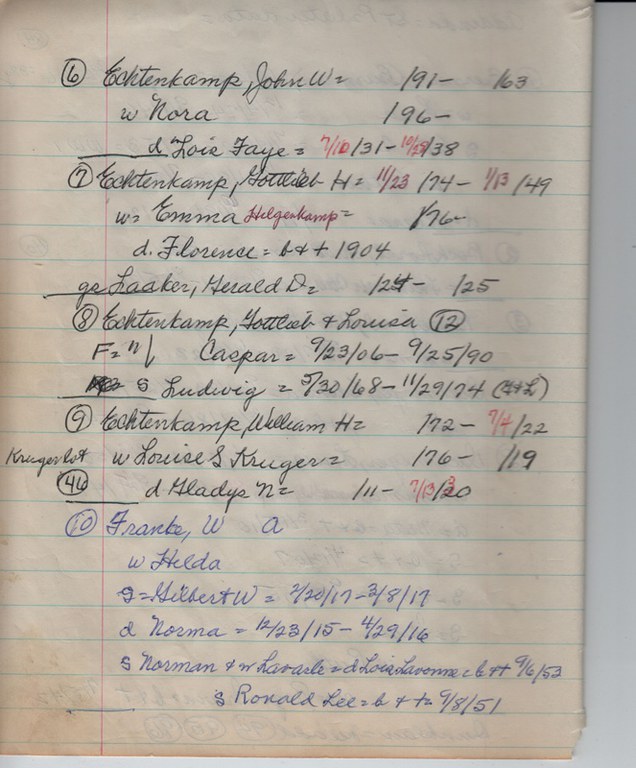 ⑥ Echtenkamp, John W= /91- /63
w Nora /96-
d Lois Faye = 7/10/31 - 10/28/38
⑦ Echtenkamp, Gottlieb H= 11/23 /74 - 1/13 /49
w= Emma Hilgenkamp= /76-
d. Florence = b & + 1904
gs Laaker, Gerald D= /24- /25
⑧ Echtenkamp, Gottlieb & Louisa ⑫
F= Caspar = 9/23/06 - 9/25/90
s Ludwig = 5/30/68 - 11/29/74 (G&L)
⑨ Echtenkamp, William H= /72- 7/4/22
Kruger lot w Louise S Kruger= /76- /19
(46) d Gladys N= /11- 7/13/20
⑩ Franke, W A
w Hilda
s=Gilbert W = 2/20/17-3/8/17
d Norma = 12/23/15 - 4/29/16
s Norman & w Lavarle = d Lois Lavonne = b & + 9/6/53
s Ronald Lee = b & += 9/8/51